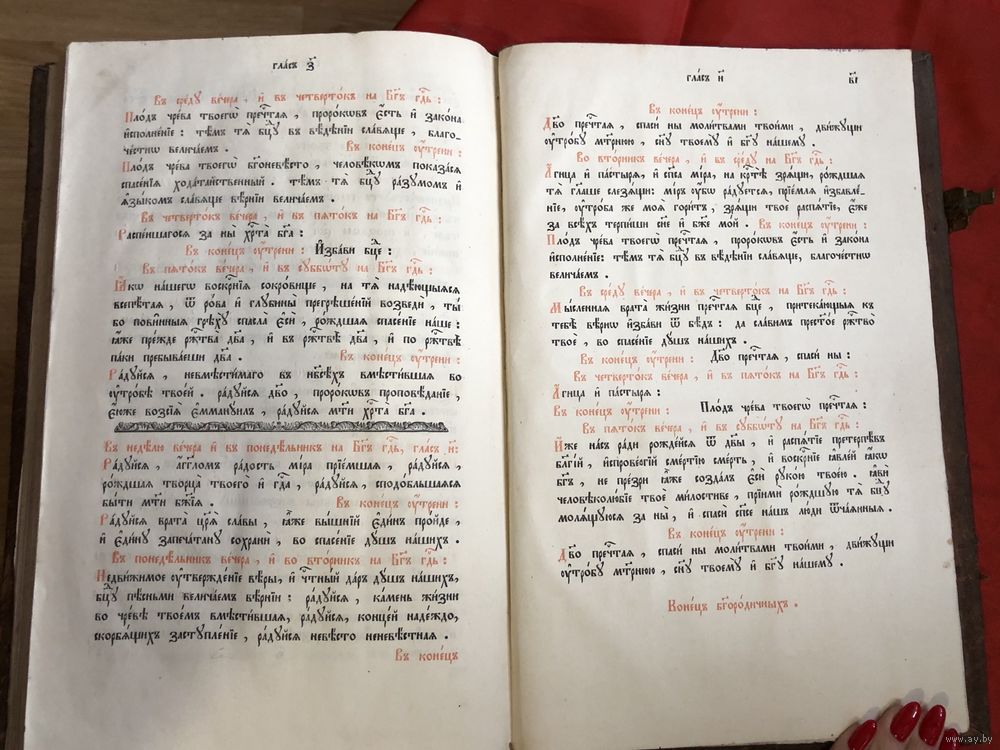 гла́съ з҃
Въ сре́ду ве́чера , и҆ въ четверто́къ на Бг҃ъ гдⷭ҇ь :
Пло́дъ чре́ва твоегѡ̀ пречⷭ҇тая , проро́ковъ є҆́сть и҆ зако́на
и҆сполне́нїе : тѣ́мъ тѧ̀ бц҃ꙋ въ вѣ́дѣнїи сла́вѧще , благо-
че́стнѡ велича́емъ . Въ коне́цъ оу҆́трени :
Пло́дъ чре́ва твоегѡ̀ бг҃оневѣ́сто , человѣ́кѡмъ показа́сѧ
спасе́нїѧ хода́тайственный . тѣ́мъ тѧ̀ бц҃ꙋ ра́зꙋмомъ и҆
ѧ҆зы́комъ сла́вѧще вѣ́рнїи велича́емъ .
Въ четверто́къ ве́чера , и҆ въ пѧто́къ на Бг҃ъ гдⷭ҇ь :
Распе́ншагосѧ за ны̀ хрⷭ҇та̀ бг҃а :
Въ коне́цъ оу҆́трени : И҆зба́ви бц҃е :
Въ пѧто́къ ве́чера , и҆ въ сꙋббѡ́тꙋ на Бг҃ъ гдⷭ҇ь :
Ꙗ҆́кѡ на́шегѡ воскрⷭ҇нїѧ сокро́вище , на тѧ̀ надѣ́ющыѧсѧ
всепѣ́таѧ , ѿ ро́ва и҆ глꙋбины̀ прегрѣше́нїй возведѝ , ты̀
бо пови́нныѧ грѣхꙋ̀ спасла̀ є҆сѝ , ро́ждшаѧ спасе́нїе на́ше :
ꙗ҆́же пре́жде ржⷭ҇тва̀ дв҃а , и҆ въ ржⷭ҇твѣ̀ дв҃а , и҆ по ржⷭ҇твѣ̀
па́ки пребыва́еши дв҃а . Въ коне́цъ оу҆́трени :
Ра́дꙋйсѧ , невмѣсти́маго въ нб҃сѣ́хъ вмѣсти́вшаѧ во
оу҆тро́бѣ твое́й . ра́дꙋйсѧ дв҃о , проро́кѡвъ проповѣ́данїе ,
є҆́юже возсїѧ̀ є҆мманꙋ́илъ , ра́дꙋйсѧ мт҃и хрⷭ҇та̀ бг҃а .
Въ недѣ́лю ве́чера и҆ въ понедѣ́льникъ на Бг҃ъ гдⷭ҇ь, гла́съ и҃:
Ра́дꙋйсѧ , а҆́гг҃ломъ ра́дость мі́ра прїе́мшаѧ , ра́дꙋйсѧ ,
ро́ждшаѧ творца̀ твоего̀ и҆ гдⷭ҇а , ра́дꙋйсѧ , сподо́бльшаѧсѧ
бы́ти мт҃и бж҃їѧ . Въ коне́цъ оу҆́трени :
Ра́дꙋйсѧ врата̀ цр҃ѧ̀ сла́вы , ꙗ҆̀же вы́шнїй є҆ди́нъ про́йде ,
и҆ є҆ди́нꙋ запеча́танꙋ сохранѝ , во спасе́нїе дꙋ́шъ на́шихъ .
Въ понедѣ́льникъ ве́чера , и҆ во вто́рникъ на Бг҃ъ гдⷭ҇ь :
Недви́жимое оу҆твержде́нїе вѣ́ры, и҆ чⷭ҇тны́й да́ръ дꙋ́шъ на́шихъ,
бц҃ꙋ пѣ́сньми велича́емъ вѣ́рнїи : ра́дꙋйсѧ , ка́мень жи́зни
во чре́вѣ твое́мъ вмѣсти́вшаѧ, ра́дꙋйсѧ, конце́й наде́ждо,
скорбѧ́щихъ застꙋпле́нїе , ра́дꙋйсѧ невѣ́сто неневѣ́стнаѧ .
Въ коне́цъ
гла́съ и҃
Въ коне́цъ оу҆́трени :
Дв҃о пречⷭ҇таѧ , спасѝ ны̀ моли́твами твои́ми , дви́жꙋщи
оу҆тро́бꙋ мт҃рнюю , сн҃ꙋ твоемꙋ̀ и҆ бг҃ꙋ на́шемꙋ .
Во вто́рникъ ве́чера , и҆ въ сре́дꙋ на Бг҃ъ гдⷭ҇ь :
А҆́гнца и҆ па́стырѧ , и҆ сп҃са мі́ра, на крⷭ҇тѣ̀ зрѧ́щи, ро́ждшаѧ
тѧ̀ глаго́лаше слезѧ́щи: мі́ръ оу҆́бѡ ра́дꙋетсѧ, прїе́млѧ и҆збавле́-
нїе, оу҆тро́ба же моѧ̀ гори́тъ , зрѧ́щи твоѐ распѧ́тїе, є҆́же
за всѣ́хъ терпи́ши сн҃е и҆ бж҃е мо́й . Въ коне́цъ оу҆́трени :
Пло́дъ чре́ва твоегѡ̀ пречⷭ҇таѧ , проро́кѡвъ є҆́сть и҆ зако́на
и҆сполне́нїе: тѣ́мъ тѧ̀ бц҃ꙋ въ вѣ́дѣнїи сла́вѧще, благоче́стнѡ
велича́емъ .
Въ сре́дꙋ ве́чера , и҆ въ четверто́къ на Бг҃ъ гдⷭ҇ь :
Мы́сленнаѧ врата̀ жи́зни пречⷭ҇таѧ бц҃е , притека́ющыѧ къ
тебѣ̀ вѣ́рнѡ и҆зба́ви ѿ бѣ́дъ : да сла́вимъ прест҃о́е ржⷭ҇тво̀
твоѐ , во спасе́нїе дꙋ́шъ на́шихъ .
Въ коне́цъ оу҆́трени : Дв҃о пречⷭ҇таѧ , спасѝ ны̀ :
Въ четверто́къ ве́чера , и҆ въ пѧто́къ на Бг҃ъ гдⷭ҇ь :
А҆́гнца и҆ па́стырѧ :
Въ коне́цъ оу҆́трени : Пло́дъ чре́ва твоегѡ̀ пречⷭ҇таѧ :
Въ пѧто́къ ве́чера , и҆ въ сꙋббѡ́тꙋ на Бг҃ъ гдⷭ҇ь :
И҆́же на́съ ра́ди рожде́йсѧ ѿ дв҃ы , и҆ распѧ́тїе претерпѣ́въ
бл҃гі́й , и҆спрове́ргїй сме́ртїю сме́рть , и҆ воскрⷭ҇нїе ꙗ҆вле́й ꙗ҆́кѡ
бг҃ъ , не пре́зри ꙗ҆̀же созда́лъ є҆сѝ рꙋко́ю твое́ю . ꙗ҆вѝ
человѣколю́бїе твоѐ ми́лостиве , прїимѝ ро́ждшꙋю тѧ̀ бц҃ꙋ
молѧ́щꙋюсѧ за ны̀ , и҆ спасѝ сп҃се на́шъ лю́ди ѿча́ѧнныѧ .
Въ коне́цъ оу҆́трени :
Дв҃о пречⷭ҇таѧ , спасѝ ны̀ моли́твами твои́ми , дви́жꙋщи
оу҆тро́бꙋ мт҃рнюю , сн҃ꙋ твоемꙋ̀ и҆ бг҃ꙋ на́шемꙋ .
Коне́цъ бг҃оро́дичныхъ .
www.ay.by